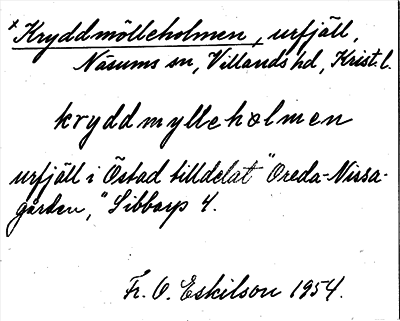 *Kryddmölleholmen, urfjäll,
Näsums sn, Villands hd, Krist. l.
kryddmylleholmen
urfjäll i Östad tilldelat "Oreda-Nissa-
gården," Sibbarp 4.
Fr. O. Eskilson 1954.